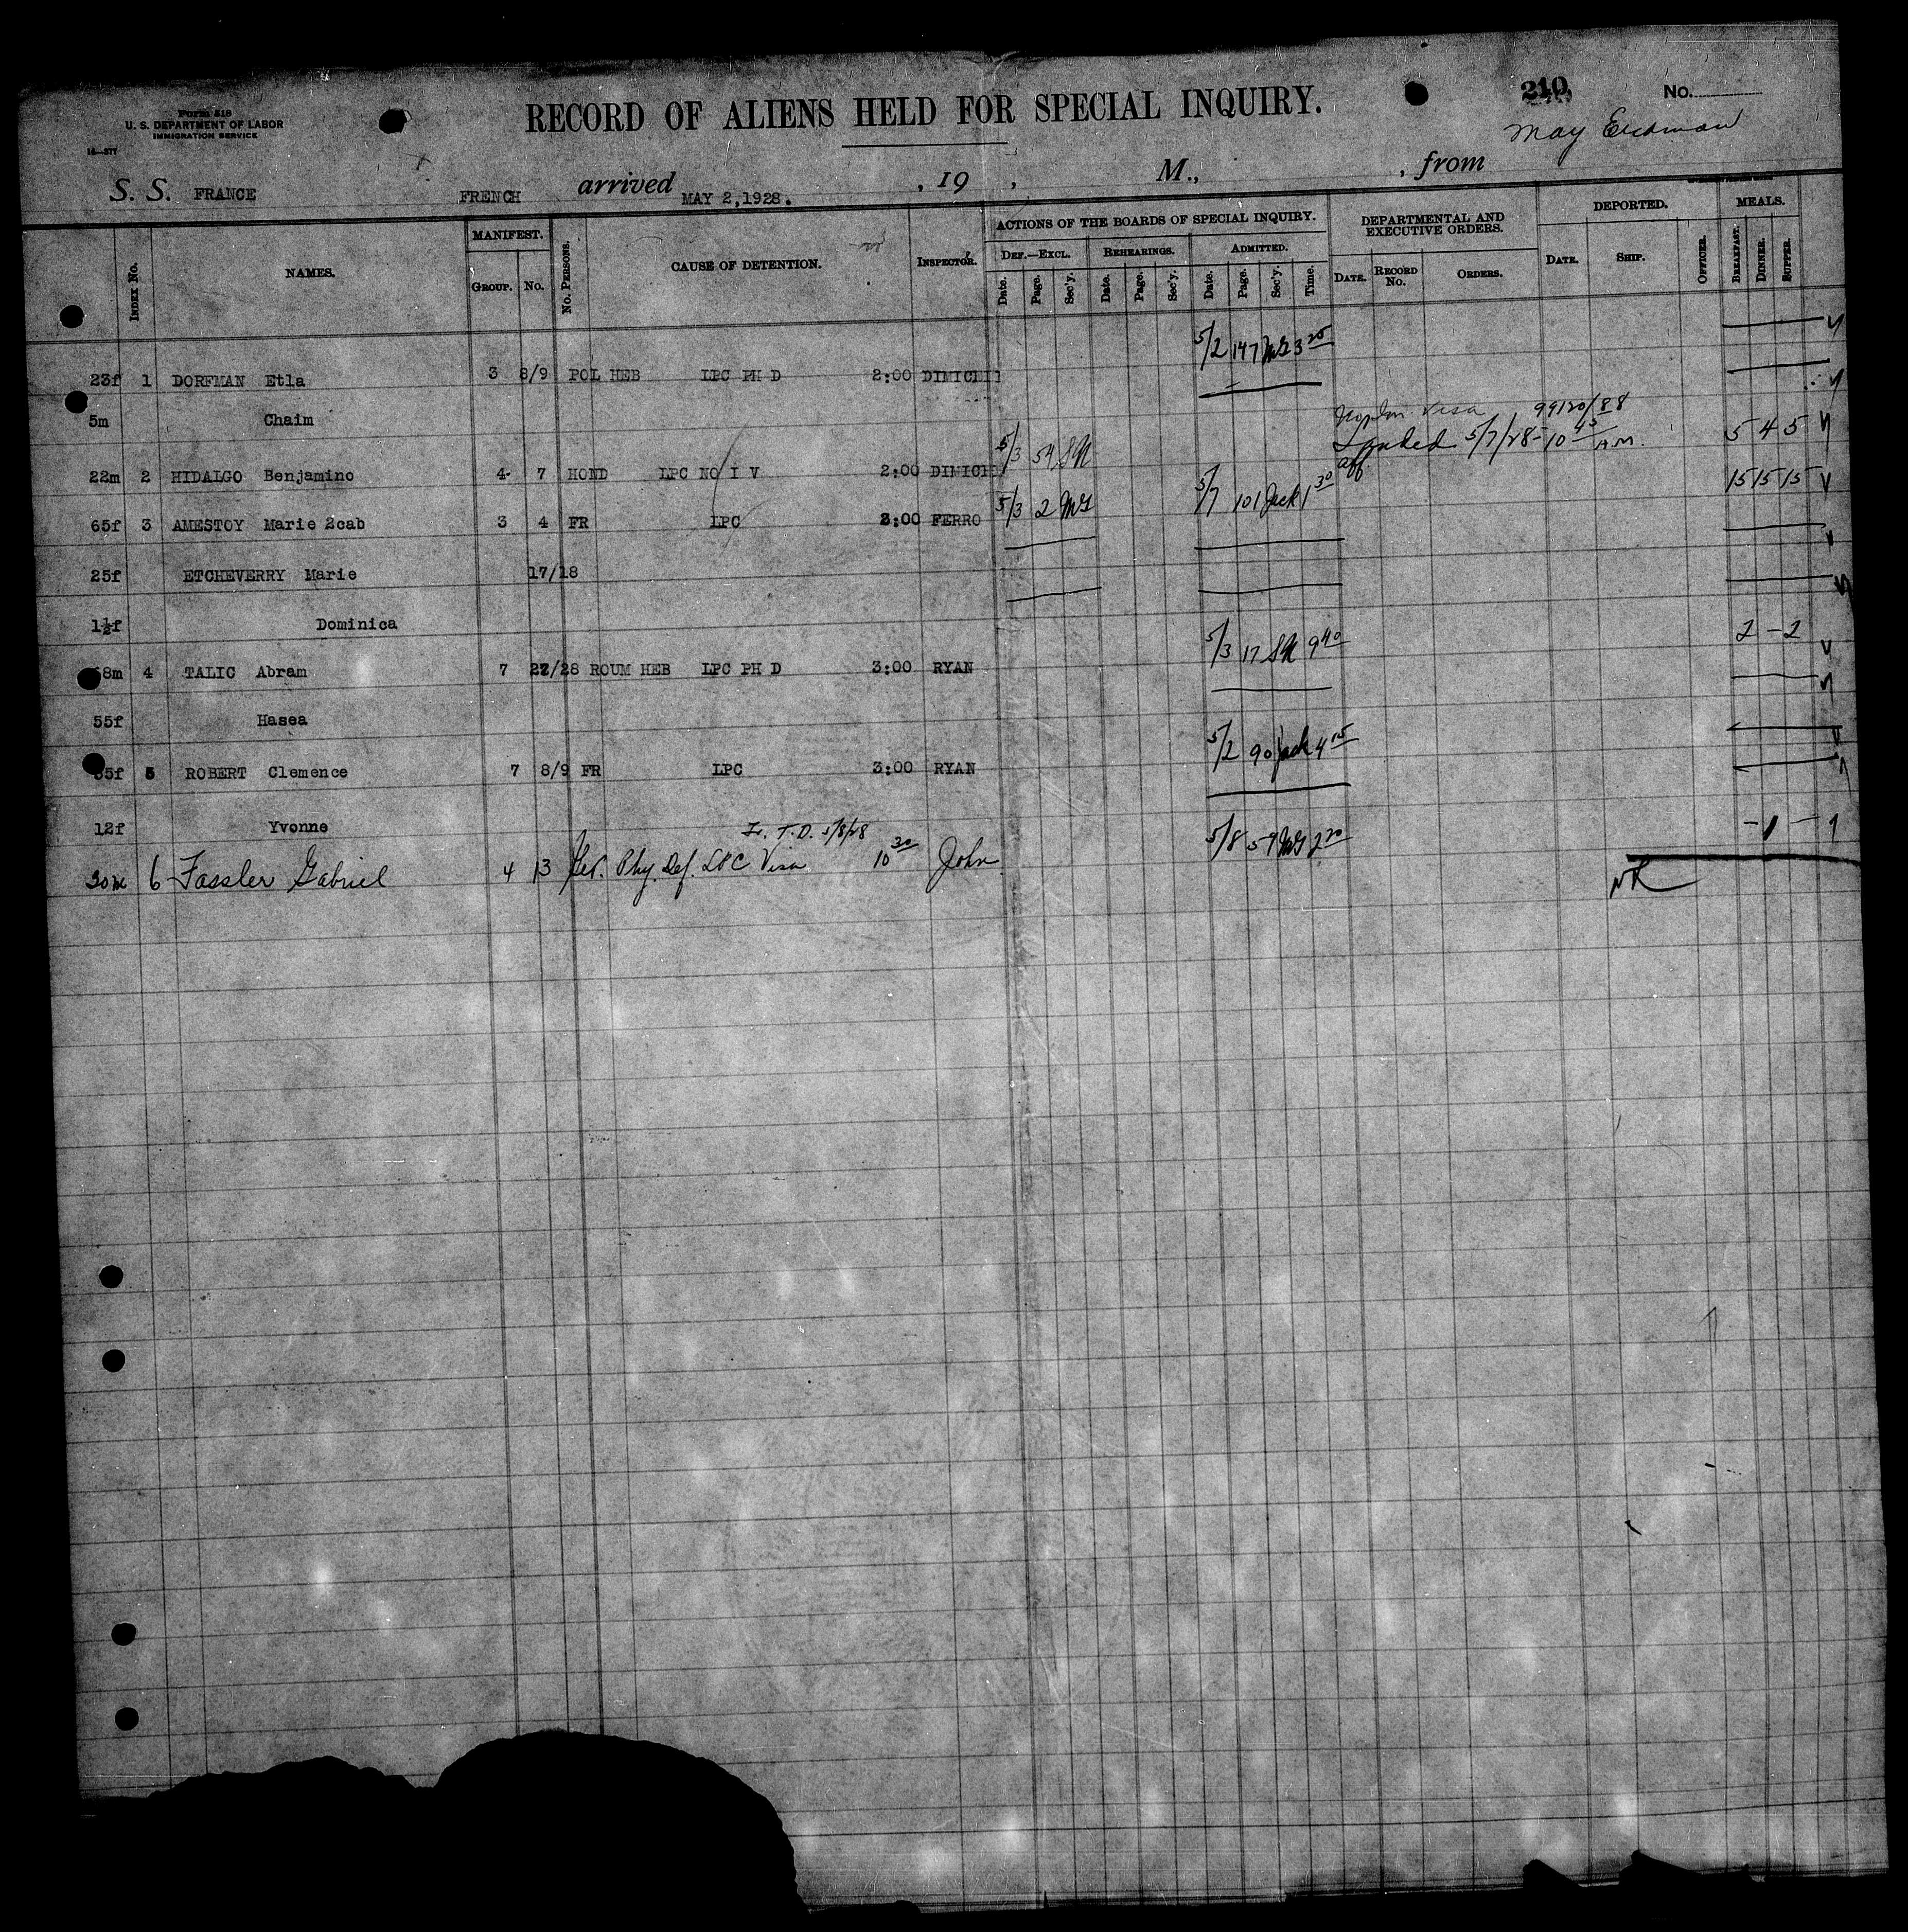 Form 518
U. S. DEPARTMENT OF LABOR
IMMIGRATION SERVICE
RECORD OF ALIENS HELD FOR SPECIAL INQUIRY.
210
No.
May Erdman
S. S. FRANCE FRENCH arrived MAY 2,1928. , 19 , M., , from
INDEX No. NAMES. MANIFEST. GROUP. No. No. PERSONS. CAUSE OF DETENTION. INSPECTOR. ACTIONS OF THE BOARDS OF SPECIAL INQUIRY. DEPARTMENTAL AND EXECUTIVE ORDERS. DEPORTED. MEALS.
DEF.—EXCL. REHEARINGS. ADMITTED.
Date. Page. Sec'y. Date. Page. Sec'y. Date. Page. Sec'y. Time. DATE. RECORD No. ORDERS. DATE. SHIP. OFFICER. BREAKFAST. DINNER. SUPPER.
23f 1 DORFMAN Etla 3 8/9 POL HEB LPC PH D 2:00 DIMICELI 5/2 147 3 25
5m Chaim
22m 2 HIDALGO Benjamino 4 7 HOND LPC NO I V 2:00 DIMICE 5/3 54 SN Visa 99120/88 Landed 5/7/28 - 10 45 A.M. 5 4 5
65f 3 AMESTOY Marie 2cab 3 4 FR LPC 3:00 FERRO 5/3 2 MG 5/7 101 Jack 1 30 15 15 15
25f ETCHEVERRY Marie 17/18
1½f Dominica
68m 4 TALIC Abram 7 27/28 ROUM HEB LPC PH D 3:00 RYAN 5/3 17 SN 9 40 2 - 2
55f Hasea
35f 5 ROBERT Clemence 7 8/9 FR LPC 3:00 RYAN 5/2 90 Jack 4 15
12f Yvonne
T.D. 5/8/28
30m 6 Fassler Gabriel 4 13 Phy. Def. LPC Visa 10 30 John 5/8 59 MG 2 20 - 1 -